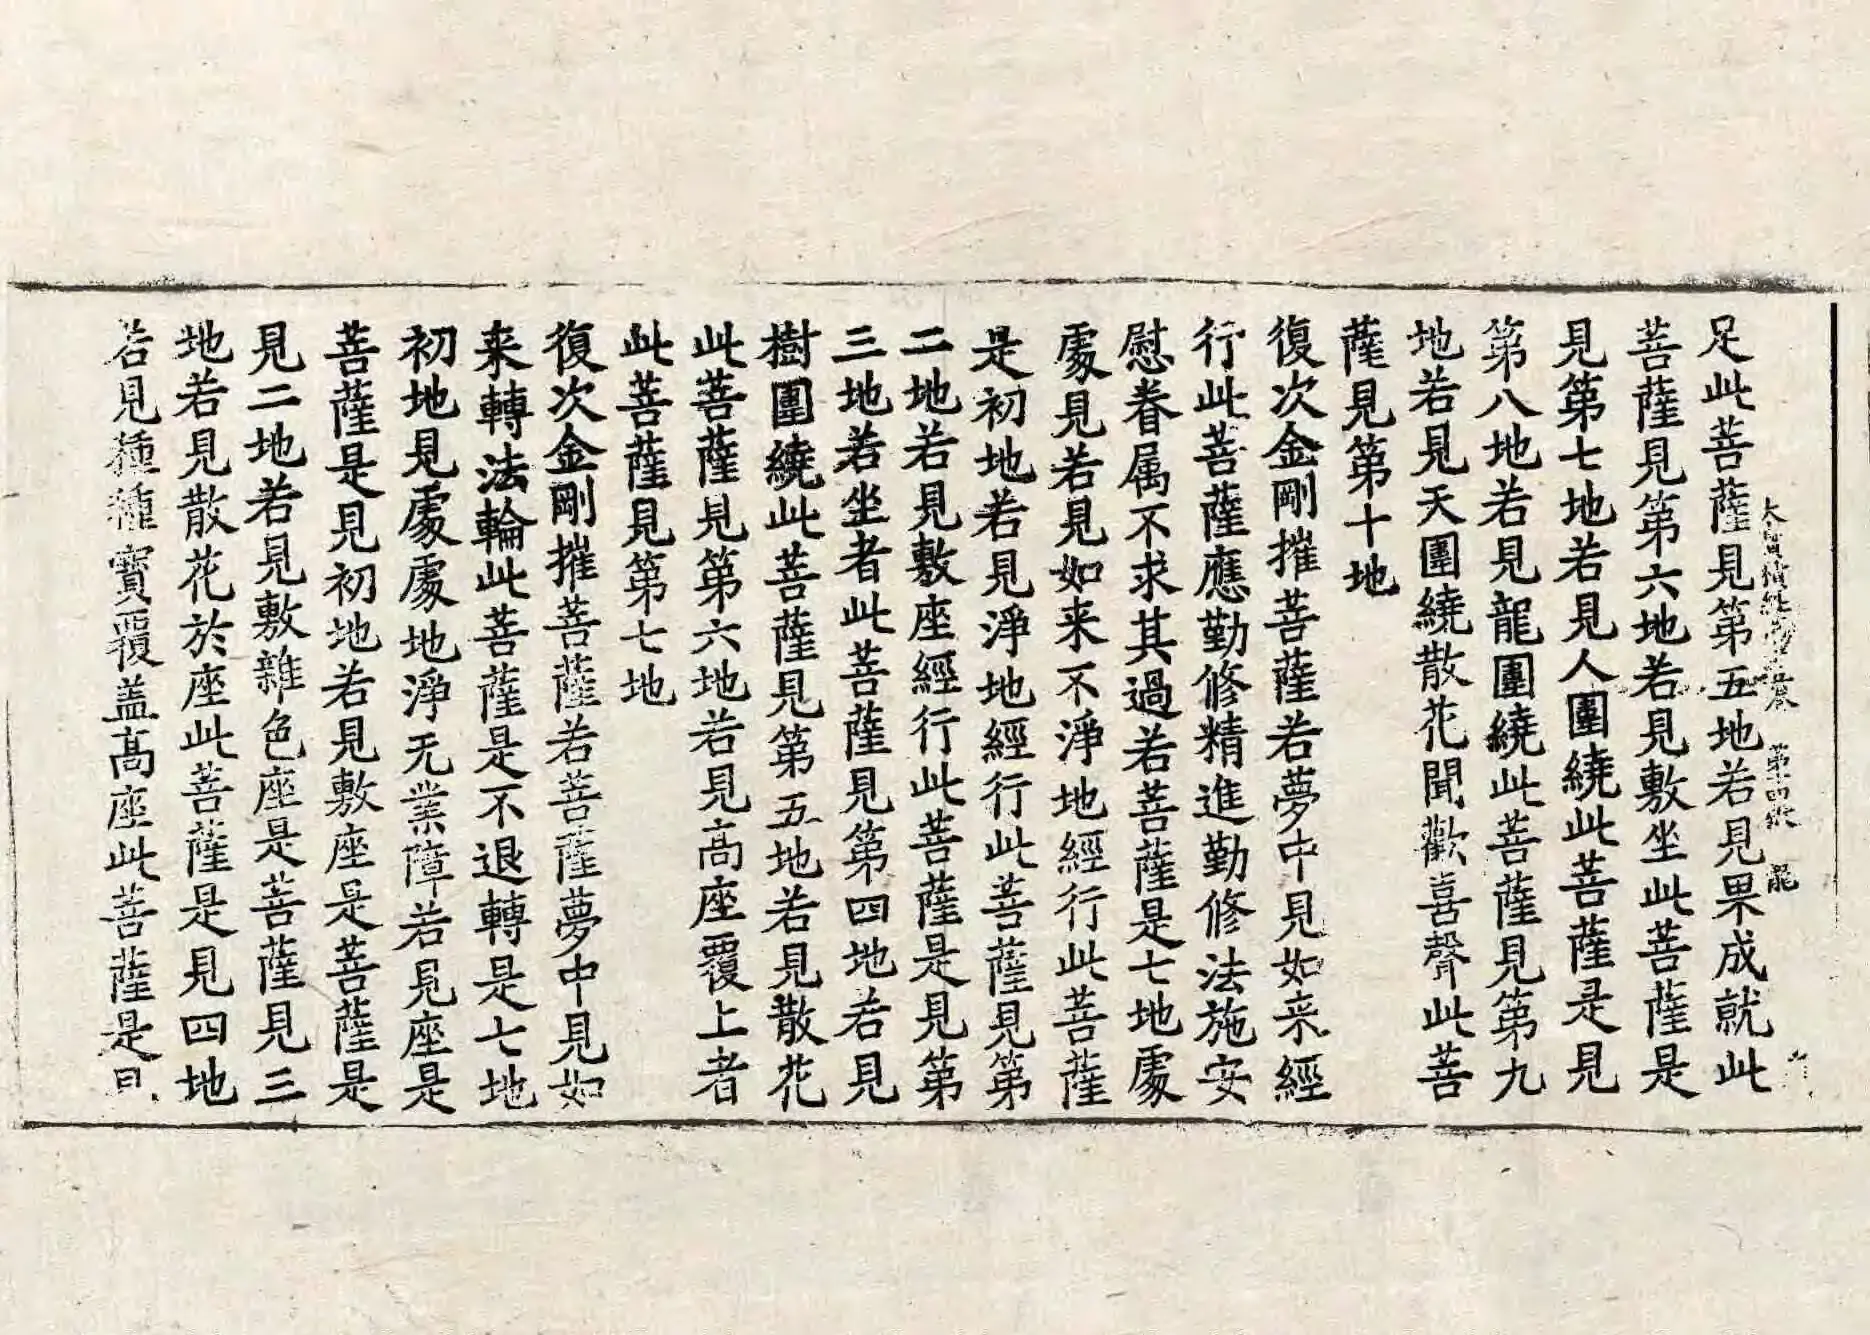 足此菩薩見第五地若見果成就此
菩薩見第六地若見敷坐此菩薩是
見第七地若見人圍繞此菩薩是見
第八地若見龍圍繞此菩薩見第九
地若見天圍繞散花聞歡喜聲此菩
薩見第十地
復次金剛摧菩薩若夢中見如来經
行此菩薩應勤修精進勤修法施安
慰眷属不求其過若菩薩是七地處
處見若見如来不淨地經行此菩薩
是初地若見淨地經行此菩薩見第
二地若見敷座經行此菩薩是見第
三地若坐者此菩薩見第四地若見
樹圍繞此菩薩見第五地若見散花
此菩薩見第六地若見高座覆上者
此菩薩見第七地
復次金剛摧菩薩若菩薩夢中見如
来轉法輪此菩薩是不退轉是七地
初地見處處地淨无業障若見座是
菩薩是見初地若見敷座是菩薩是
見二地若見敷雜色座是菩薩見三
地若見散花於座此菩薩是見四地
若見種種寶覆盖高座此菩薩是見